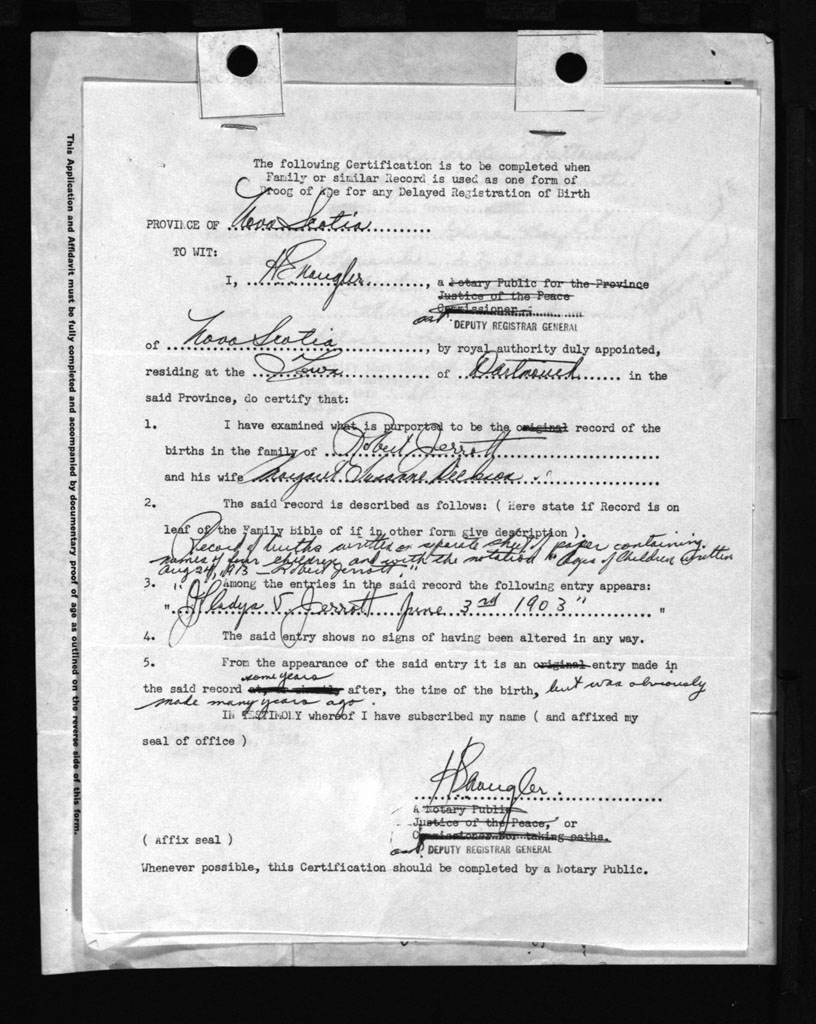 The following Certification is to be completed when
Family or similar Record is used as one form of
Proog of Age for any Delayed Registration of Birth
PROVINCE OF Nova Scotia
TO WIT:
I, H E Naugler, a Notary Public for the Province
Justice of the Peace
Commissioner
DEPUTY REGISTRAR GENERAL
of Nova Scotia, by royal authority duly appointed,
residing at the Town of Dartmouth in the
said Province, do certify that:
1. I have examined what is purported to be the original record of the
births in the family of Robert Jerrott
and his wife Margaret Susanne
2. The said record is described as follows: ( Here state if Record is on
leaf of the Family Bible of if in other form give description ).
Record of births written on separate sheet of paper containing
names of four children and with the notation "Ages of Children written
Aug 24, 1913 - Robert Jerrott"
3. Among the entries in the said record the following entry appears:
" Gladys V. Jerrott June 3rd 1903 " "
4. The said entry shows no signs of having been altered in any way.
5. From the appearance of the said entry it is an original entry made in
some years
the said record at, or shortly after, the time of the birth, but was obviously
made many years ago.
IN TESTIMOLY whereof I have subscribed my name ( and affixed my
seal of office )
H E Naugler.
A Notary Public
Justice of the Peace, or
Commissioner for taking oaths.
( Affix seal )
DEPUTY REGISTRAR GENERAL
Whenever possible, this Certification should be completed by a Notary Public.
This Application and Affidavit must be fully completed and accompanied by documentary proof of age as outlined on the reverse side of this form.